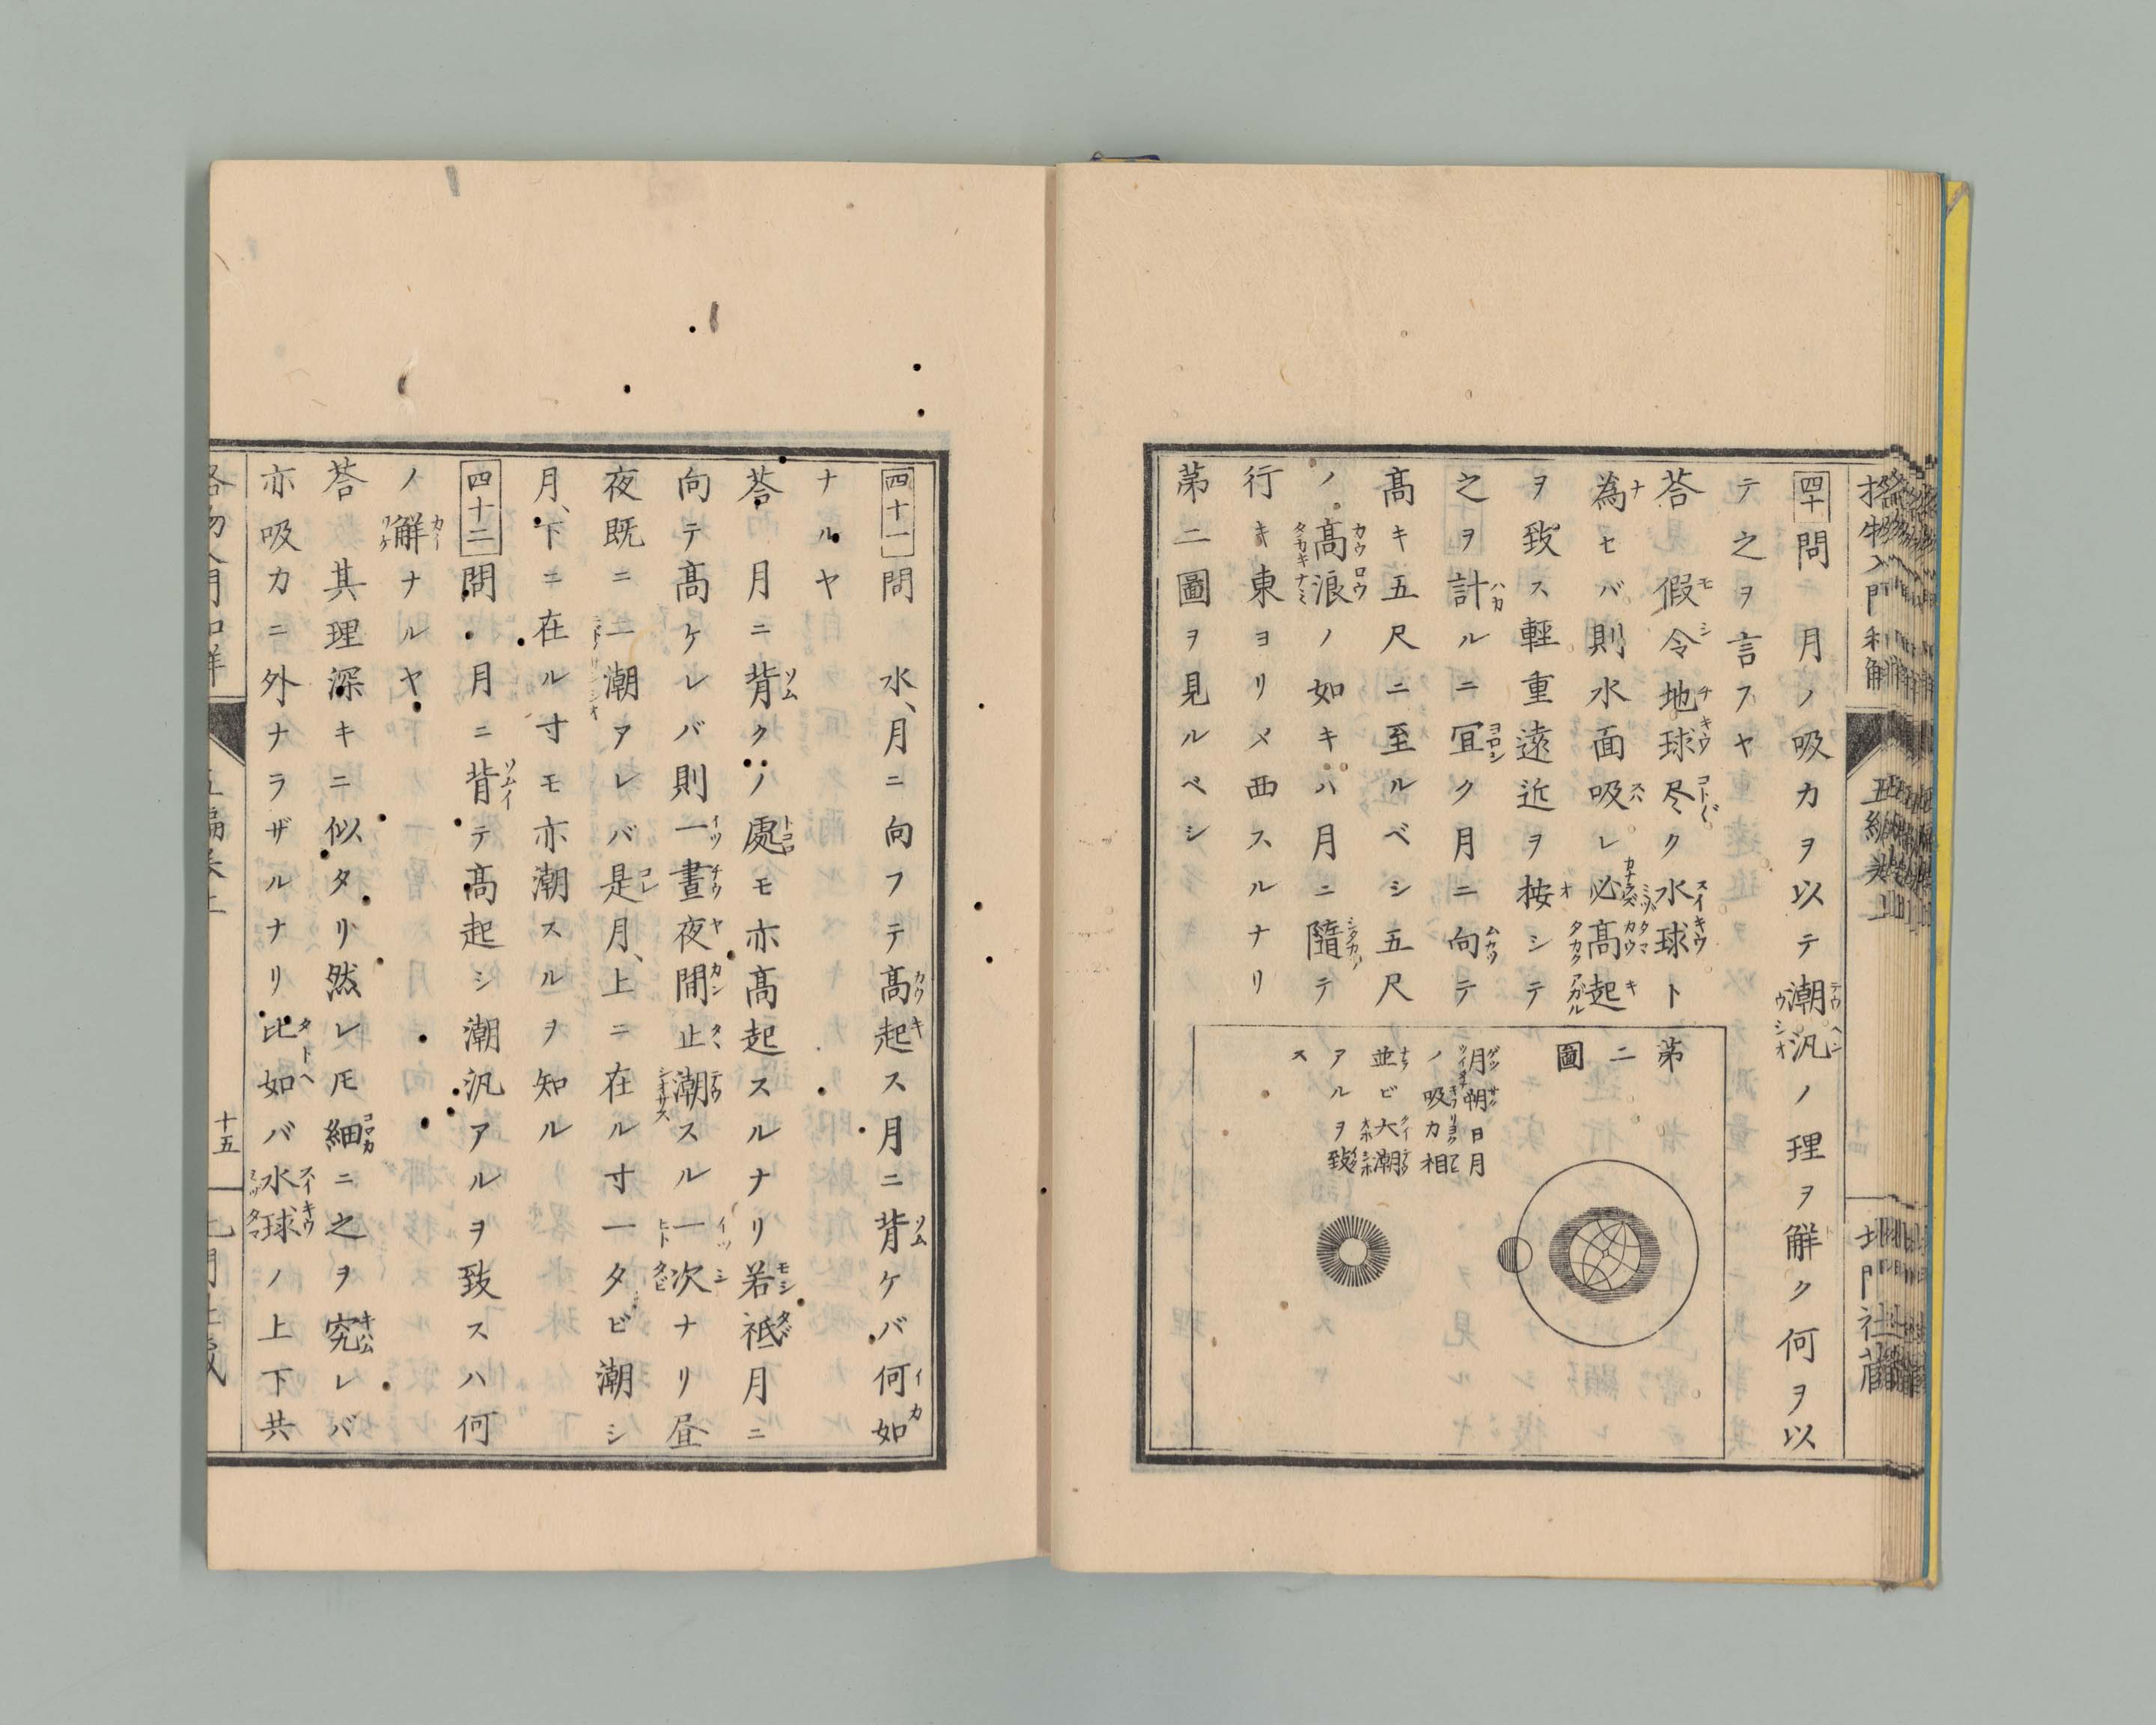 格物入門和解
五編卷上
北門社藏
四十問　月ノ吸力ヲ以テ潮汛ノ理ヲ解ク何ヲ以
テ之ヲ言フヤ
荅　假令地球尽ク水球ト
為セバ則水面吸レ必髙起
ヲ致ス輕重遠近ヲ按シテ
之ヲ計ルニ冝ク月ニ向テ
髙キ五尺ニ至ルベシ五尺
ノ髙浪ノ如キハ月ニ隨テ
行キ東ヨリメ西スルナリ
苐二圖ヲ見ルベシ
苐二圖
月朔日月
ノ吸力相
並ビ大潮
アルヲ致
ス
四十一問　水、月ニ向フテ髙起ス月ニ背ケバ何如
ナルヤ
荅　月ニ背クノ處モ亦髙起スルナリ若祗月ニ
向テ髙ケレバ則一晝夜間止潮スル一次ナリ昼
夜既ニ二潮アレバ是月、上ニ在ル寸一タビ潮シ
月、下ニ在ル寸モ亦潮スルヲ知ル
四十二問　月ニ背テ髙起シ潮汛アルヲ致スハ何
ノ解ナルヤ
荅　其理深キニ似タリ然レ𪜈細ニ之ヲ究レバ
亦吸力ニ外ナラザルナリ比如バ水球ノ上下共
格物入門和解
五編卷上
十五
北門社藏